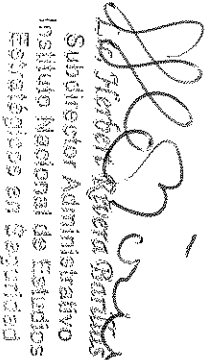 Lic. Reyna
Subdirector Administrativo
Instituto Nacional de Estudios
Estratégicos en Seguridad